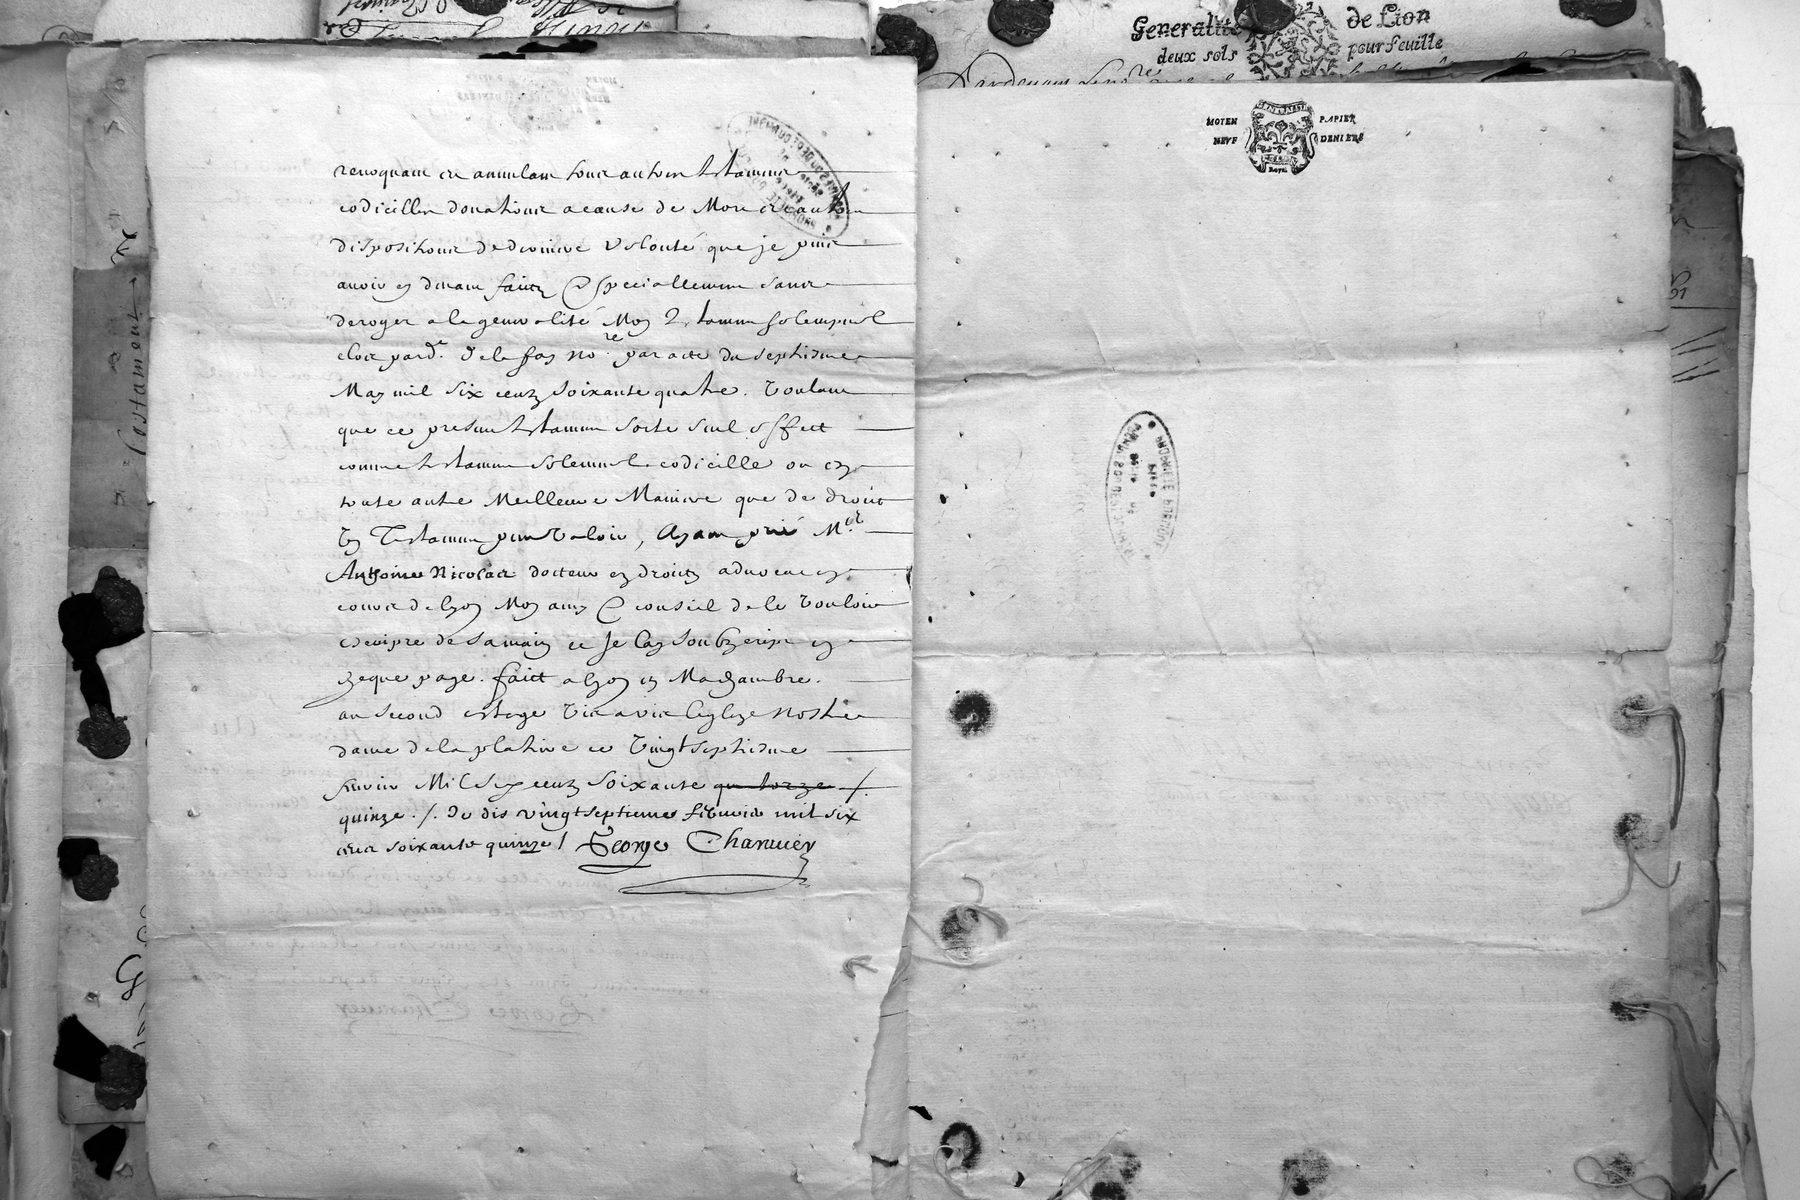 Generalité de Lion
deux sols pour feuille
MOYEN PAPIER
NEUF DENIERS
revoquant et annulant tous autres testamens
codicilles donations a cause de Mort et autres
dispositions de derniere Volonté que je puis
avoir cy devant faits Et speciallement sans
deroger a la generalité Mon Testament solempnel
clos par d. De la fay no.re par acte du septiesme
May mil six centz soixante quatre. Voulant
que ce present testament sorte seul effect
comme testament solemnel codicille ou en
toute autre Meilleure Maniere que de droit
Un Testament peut Valoir, Ayant prié Mr
Anthoine Nicolas docteur en droitz advocat en
cours de lyon Mon amy Et conseil de le Vouloir
escripre de sa main et Je l'ay soubzcript en
cheque page. faict a lyon en Ma chambre
au second estage Vis a vis leglize nostre
dame de la platiere ce Vingt septiesme
fevrier Mil six centz soixante quatorze /.
quinze. /. Je dis vingtseptieme febvrier mil six
cens soixante quinze / George Charuier
Testament